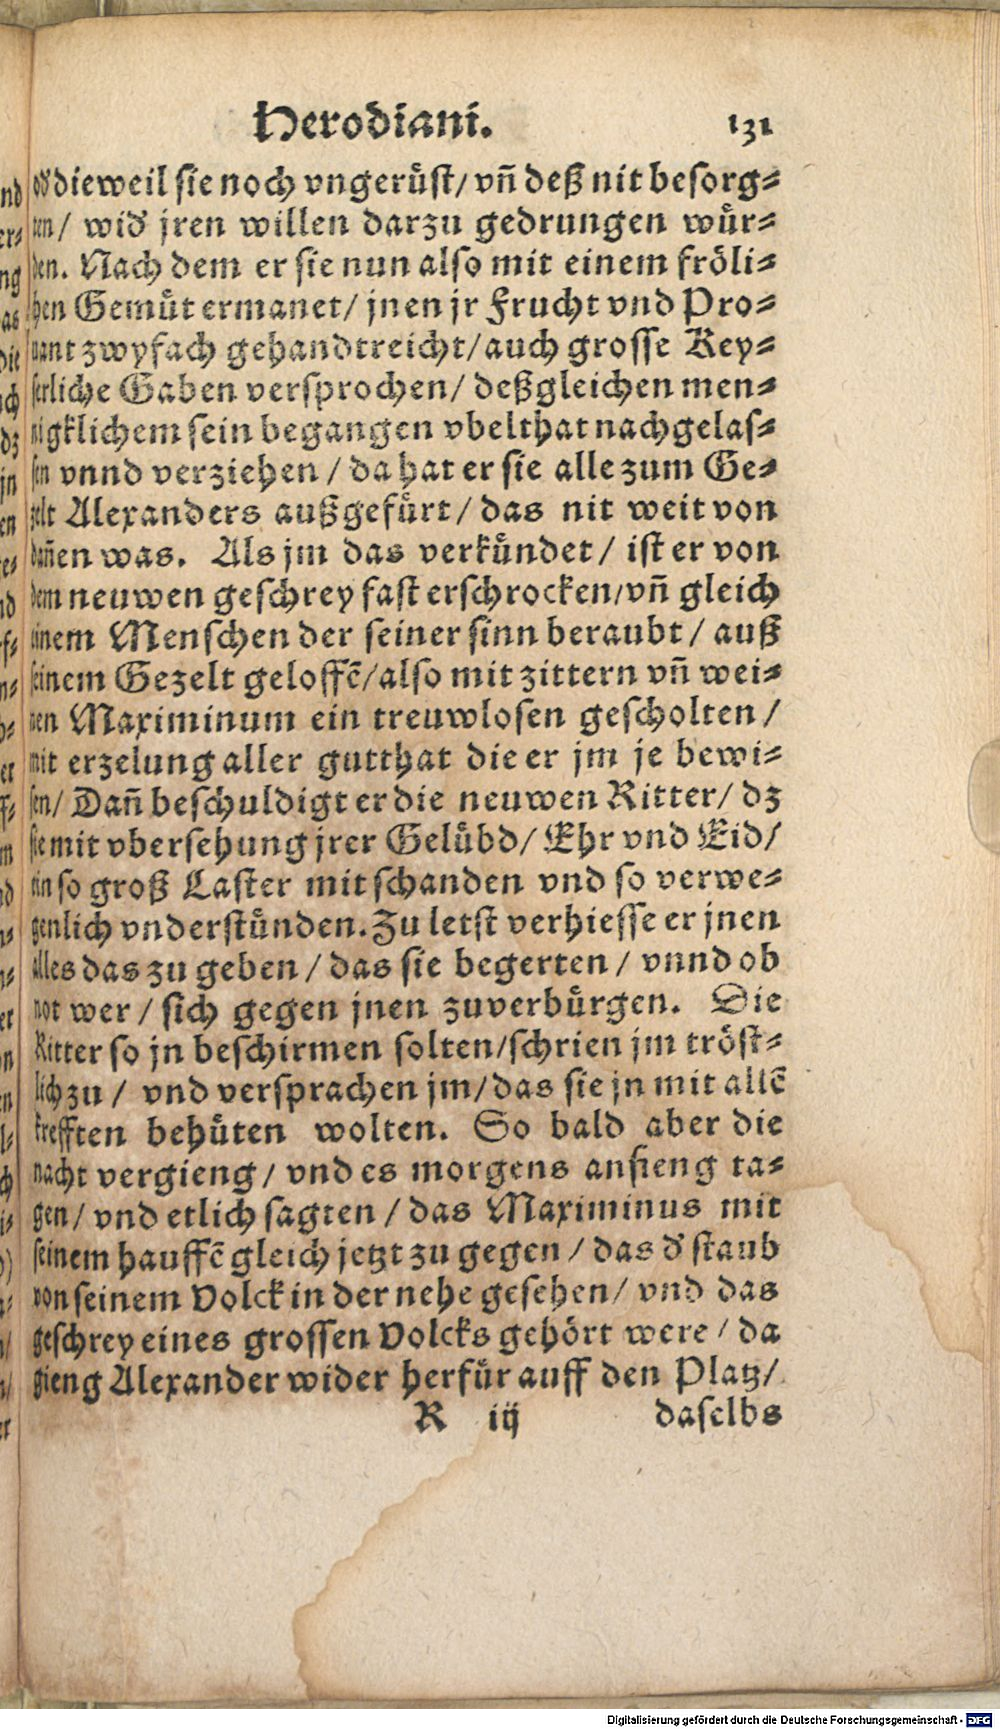 Herodiani. 131
od' dieweil sie noch vngerüst/ vñ deß nit besorg-
ten/ wid' jren willen darzu gedrungen wür-
den. Nach dem er sie nun also mit einem fröli-
chen Gemüt ermanet/ jnen jr Frucht vnd Pro-
uant zwyfach gehandtreicht/ auch grosse Key-
serliche Gaben versprochen/ deßgleichen men-
nigklichem sein begangen vbelthat nachgelas-
sen vnnd verziehen / da hat er sie alle zum Ge-
zelt Alexanders außgefürt/ das nit weit von
dañen was. Als jm das verkündet/ ist er von
dem neuwen geschrey fast erschrocken/ vñ gleich
einem Menschen der seiner sinn beraubt/ auß
seinem Gezelt geloffē/ also mit zittern vñ wei-
nen Maximinum ein treuwlosen gescholten/
mit erzelung aller gutthat die er jm je bewi-
sen/ Dañ beschuldigt er die neuwen Ritter/ dz
sie mit vbersehung jrer Gelübd/ Ehr vnd Eid/
ein so groß Laster mit schanden vnd so verwe-
genlich vnderstünden. Zu letst verhiesse er jnen
alles das zu geben / das sie begerten / vnnd ob
not wer / sich gegen jnen zuverbürgen. Die
Ritter so jn beschirmen solten/ schrien jm tröst-
lich zu / vnd versprachen jm/ das sie jn mit allē
krefften behüten wolten. So bald aber die
nacht vergieng/ vnd es morgens anfieng ta-
gen/ vnd etlich sagten / das Maximinus mit
seinem hauffē gleich jetzt zu gegen / das d' staub
von seinem Volck in der nehe gesehen/ vnd das
geschrey eines grossen Volcks gehört were/ da
gieng Alexander wider herfür auff den Platz/
R iij daselbs
Digitalisierung gefördert durch die Deutsche Forschungsgemeinschaft - DFG